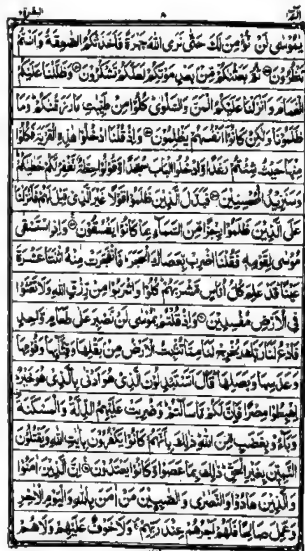 البقرة ٢
٨
الم ١
يٰمُوْسٰى لَنْ نُّؤْمِنَ لَكَ حَتّٰى نَرَى اللّٰهَ جَهْرَةً فَاَخَذَتْكُمُ الصّٰعِقَةُ وَاَنْتُمْ
تَنْظُرُوْنَ ثُمَّ بَعَثْنٰكُمْ مِّنْۢ بَعْدِ مَوْتِكُمْ لَعَلَّكُمْ تَشْكُرُوْنَ وَظَلَّلْنَا عَلَيْكُمُ
الْغَمَامَ وَاَنْزَلْنَا عَلَيْكُمُ الْمَنَّ وَالسَّلْوٰى كُلُوْا مِنْ طَيِّبٰتِ مَا رَزَقْنٰكُمْ وَمَا
ظَلَمُوْنَا وَلٰكِنْ كَانُوْٓا اَنْفُسَهُمْ يَظْلِمُوْنَ وَاِذْ قُلْنَا ادْخُلُوْا هٰذِهِ الْقَرْيَةَ فَكُلُوْا
مِنْهَا حَيْثُ شِئْتُمْ رَغَدًا وَّادْخُلُوا الْبَابَ سُجَّدًا وَّقُوْلُوْا حِطَّةٌ نَّغْفِرْ لَكُمْ خَطٰيٰكُمْ
وَسَنَزِيْدُ الْمُحْسِنِيْنَ فَبَدَّلَ الَّذِيْنَ ظَلَمُوْا قَوْلًا غَيْرَ الَّذِيْ قِيْلَ لَهُمْ فَاَنْزَلْنَا
عَلَى الَّذِيْنَ ظَلَمُوْا رِجْزًا مِّنَ السَّمَآءِ بِمَا كَانُوْا يَفْسُقُوْنَ وَاِذِ اسْتَسْقٰى
مُوْسٰى لِقَوْمِهٖ فَقُلْنَا اضْرِبْ بِّعَصَاكَ الْحَجَرَ فَانْفَجَرَتْ مِنْهُ اثْنَتَا عَشْرَةَ
عَيْنًا قَدْ عَلِمَ كُلُّ اُنَاسٍ مَّشْرَبَهُمْ كُلُوْا وَاشْرَبُوْا مِنْ رِّزْقِ اللّٰهِ وَلَا تَعْثَوْا
فِى الْاَرْضِ مُفْسِدِيْنَ وَاِذْ قُلْتُمْ يٰمُوْسٰى لَنْ نَّصْبِرَ عَلٰى طَعَامٍ وَّاحِدٍ
فَادْعُ لَنَا رَبَّكَ يُخْرِجْ لَنَا مِمَّا تُنْۢبِتُ الْاَرْضُ مِنْۢ بَقْلِهَا وَقِثَّآئِهَا وَفُوْمِهَا
وَعَدَسِهَا وَبَصَلِهَا قَالَ اَتَسْتَبْدِلُوْنَ الَّذِيْ هُوَ اَدْنٰى بِالَّذِيْ هُوَ خَيْرٌ
اِهْبِطُوْا مِصْرًا فَاِنَّ لَكُمْ مَّا سَاَلْتُمْ وَضُرِبَتْ عَلَيْهِمُ الذِّلَّةُ وَالْمَسْكَنَةُ
وَبَآءُوْ بِغَضَبٍ مِّنَ اللّٰهِ ذٰلِكَ بِاَنَّهُمْ كَانُوْا يَكْفُرُوْنَ بِاٰيٰتِ اللّٰهِ وَيَقْتُلُوْنَ
النَّبِيّٖنَ بِغَيْرِ الْحَقِّ ذٰلِكَ بِمَا عَصَوْا وَّكَانُوْا يَعْتَدُوْنَ اِنَّ الَّذِيْنَ اٰمَنُوْا
وَالَّذِيْنَ هَادُوْا وَالنَّصٰرٰى وَالصّٰبِئِيْنَ مَنْ اٰمَنَ بِاللّٰهِ وَالْيَوْمِ الْاٰخِرِ
وَعَمِلَ صَالِحًا فَلَهُمْ اَجْرُهُمْ عِنْدَ رَبِّهِمْ وَلَا خَوْفٌ عَلَيْهِمْ وَلَا هُمْ